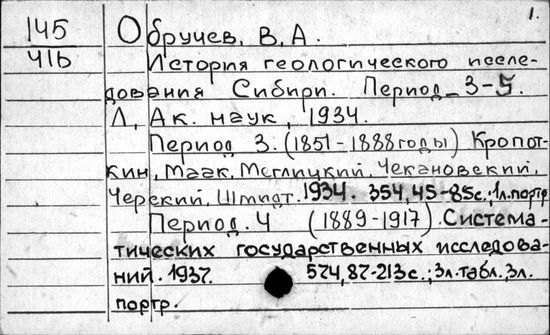 1.
145
41b
Обручев, В. А.
История геологического иссле-
дования Сибири. Период 3-5.
Л, Ак. наук, 1934.
Период 3. (1851-1888 годы) Кропот-
кин, Маак, Меглицкий, Чекановский,
Черский, Шмидт. 1934. 354, 45-85с.; 1л. портр
Период. 4 (1889-1917). Система-
тических государственных исследова-
ний. 1937. 574, 87-213с.; 3л. табл., 3л.
портр.